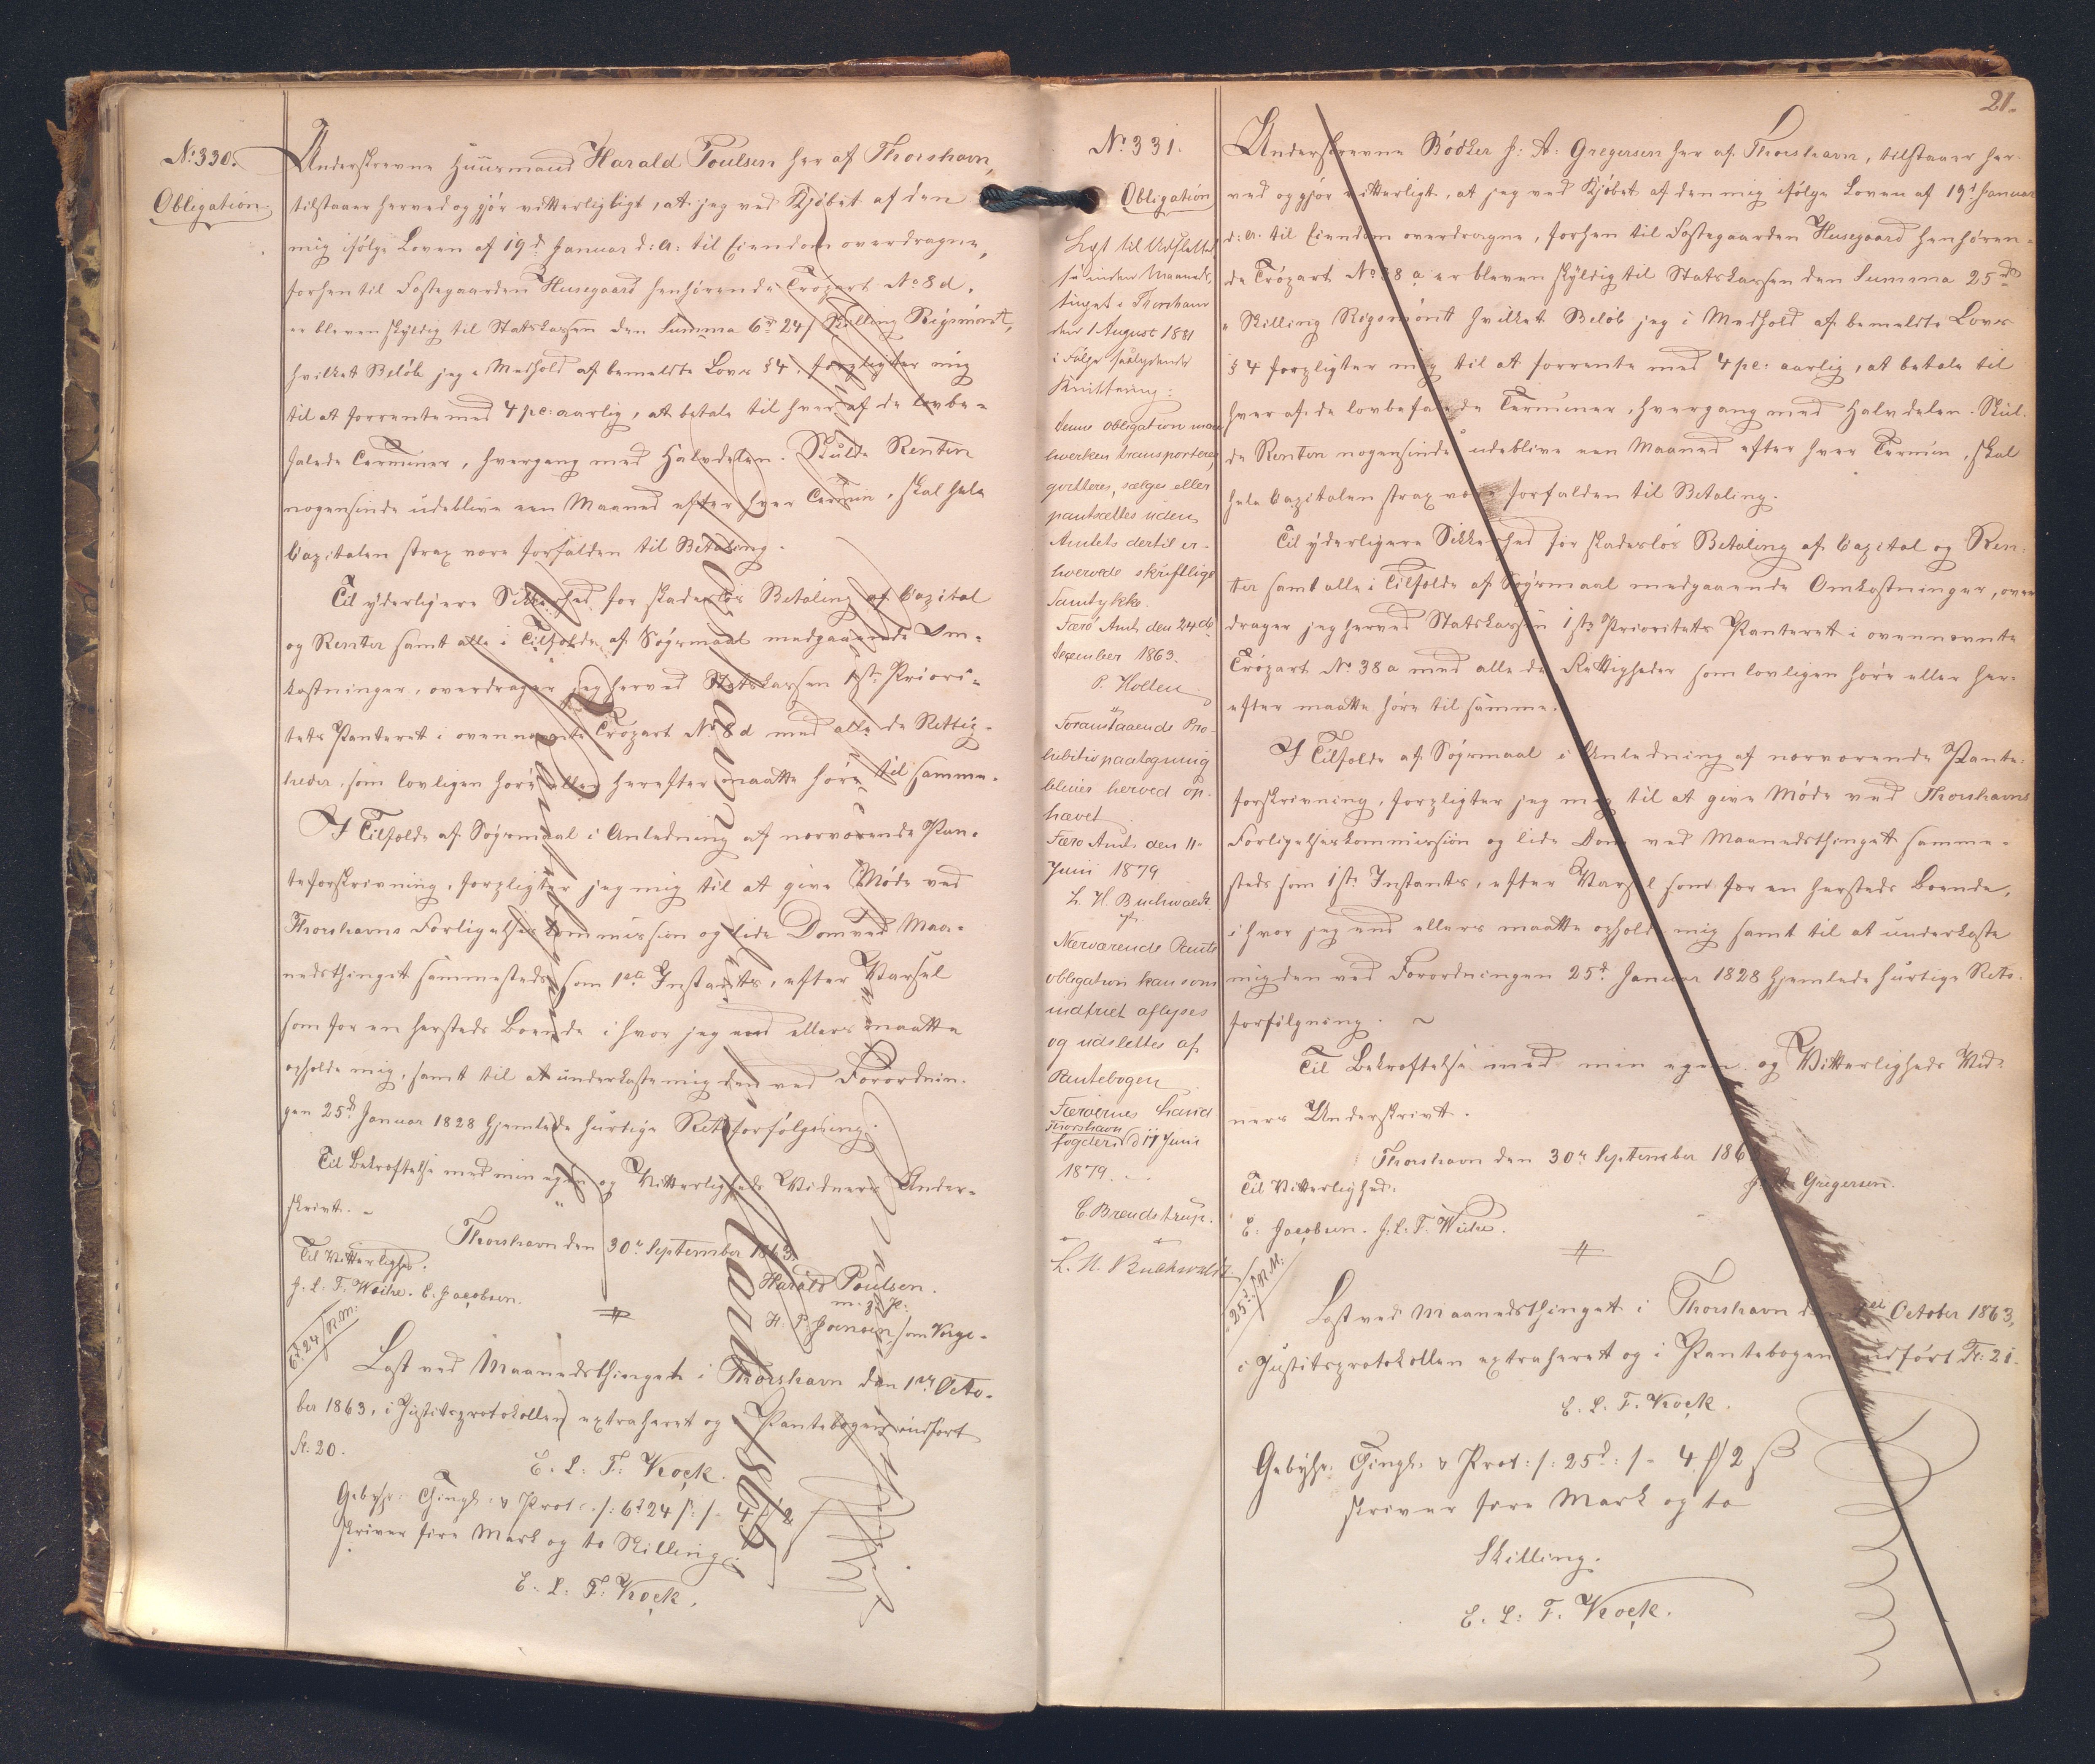 No: 330.
Obligation.
Underskrevne Huusmand Harald Poulsen her af Thorshavn,
tilstaaer herved og gjör vitterligligt, at jeg ved Kjöbet af den
mig ifölge Loven af 19d Januar d: A: til Eiendom overdragne,
forhen til Fæstegaarden Husegaard henhörende Tröpart No 8 d.
er bleven skyldig til Statskassen den Summa 6d 24/ Skilling Rigsmönt,
hvilket Belöb jeg i Medhold af bemeldte Lovs § 4, forpligter mig
til at forrente med 4 pc: aarlig, at betale til hver af de lovbe-
falede Terminer, hvergang med Halvdelen. Skulde Renten
nogensinde udeblive een Maaned efter hver Termin, skal hele
Capitalen strax være forfalden til Betaling.
Til yderligere Sikkerhed for skadeslös Betaling af Capital
og Renter samt alle i Tilfælde af Sögsmaal medgaaende Om-
kostninger, overdrager jeg herved Statskassen 1ste Priori-
tets Panteret i ovennævnte Tröpart No 8 d med alle de Rettig-
heder, som lovligen höre eller herefter maatte höre til samme.
I Tilfælde af Sögsmaal i Anledning af nærværende Pan-
teforskrivning, forpligter jeg mig til at give Möde ved
Thorshavns Forligelseskommission og lide Dom ved Maa-
nedsthinget sammesteds som 1ste Instants, efter Varsel
som for en hersteds Boende i hvor jeg end ellers maatte
opholde mig, samt til at underkaste mig den ved Forordnin-
gen 25d Januar 1828 hjemlede hurtige Retsforfölgning.
Til Bekræftelse med min egen og Vitterligheds Vidners Under-
skrivt.
Thorshavn den 30te September 1863.
Til Vitterlighed.
Harald Poulsen.
m: f: P:
J. L: F. Weihe. E. Jacobsen.
H. P. Joensen som Værge.
6d. 24/ R.M:
Læst ved Maanedsthinget i Thorshavn den 1ste Octo-
ber 1863, i Justitsprotokollen extraheret og i Pantebogen indfört
Fr. 20.
E. L: F: Kock.
Gebyhr: Thingl: & Prot: /: 6d 24 /: /- 4 / 2
skriver fire Mark og to Skilling.
E. L: F: Kock.
21.
No 331.
Obligation
Lyst til Udslettel-
se inden Maaneds-
tinget i Thorshavn
den 1 August 1881
i Fölge saalydende
Kvittering:
Denne Obligation maa
hverken transporteres,
qvitteres, sælges eller
pantsættes uden
Amtets dertil er-
hvervede skriftlige
Samtykke.
Færö Amt den 24de
December 1863.
P. Holten
Foranstaaende Pro-
hibitivpaategning
bliver herved op-
hævet.
Færö Amt den 11-
Juni 1879
L. H. Buchwaldt.
Nærværende Pante
obligation kan som
indfriet aflyses
og udslettes af
Pantebogen
Færöernes Land
Thorshavn
fogderi d 11 Juni
1879. . .
C. Brændstrup.
L. H. Buchwaldt.
Underskrevne Bödker J: A: Gregersen her af Thorshavn, tilstaaer her-
ved og gjör vitterligt, at jeg ved Kjöbet af den mig ifölge Loven af 19d Januar
d: A. til Eiendom overdragne, forhen til Fæstegaarden Husegaard henhören-
de Tröpart No 38 a er bleven skyldig til Statskassen den Summa 25d
" Skilling Rigsmönt hvilket Belöb jeg i Medhold af bemeldte Lovs
§ 4 forpligter mig til at forrente med 4 pc: aarlig, at betale til
hver af de lovbefalede Terminer, hvergang med Halvdelen. Skul-
de Renten nogensinde udeblive een Maaned efter hver Termin, skal
hele Capitalen strax være forfalden til Betaling.
Til yderligere Sikkerhed for skadeslös Betaling af Capital og Ren-
ter samt alle i Tilfælde af Sögsmaal medgaaende Omkostninger, over
drager jeg herved Statskassen 1ste Prioritets Panteret i ovennævnte
Tröpart No 38 a med alle de Rettigheder som lovligen höre eller her-
efter maatte höre til samme.
I Tilfælde af Sögsmaal i Anledning af nærværende Pante-
forskrivning, forpligter jeg mig til at give Möde ved Thorshavns
Forligelseskommission og lide Dom ved Maanedsthinget samme-
steds som 1ste Instants, efter Varsel som for en hersteds Boende,
i hvor jeg end ellers maatte opholde mig samt til at underkaste
mig den ved Forordningen 25d Januar 1828 hjemlede hurtige Rets-
forfölgning.
Til Bekræftelse med min egen og Vitterligheds Vid-
ners Underskrivt.
Thorshavn den 30te September 186
Til Vitterlighed:
J. A. Gregersen.
E. Jacobsen. J. L. F. Weihe.
25d. / R.M:
Læst ved Maanedsthinget i Thorshavn den 1ste October 1863,
i Justitsprotokollen extraheret og i Pantebogen indfört Fr: 21.
E. L. F. Kock.
Gebyhr: Thingl: & Prot: /: 25d: /- 4 / 2 ß
skriver fire Mark og to
Skilling.
E. L: F. Kock.